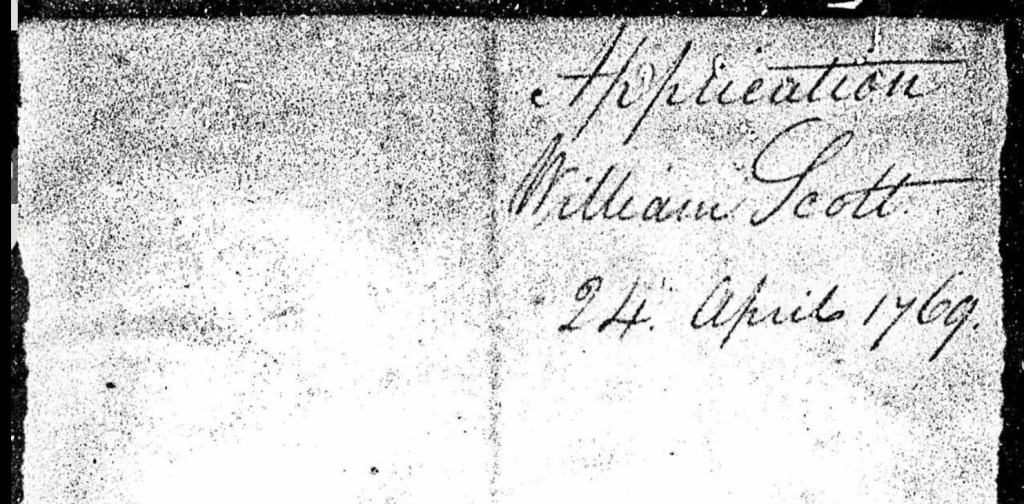 Application
William Scott.
24. April 1769.